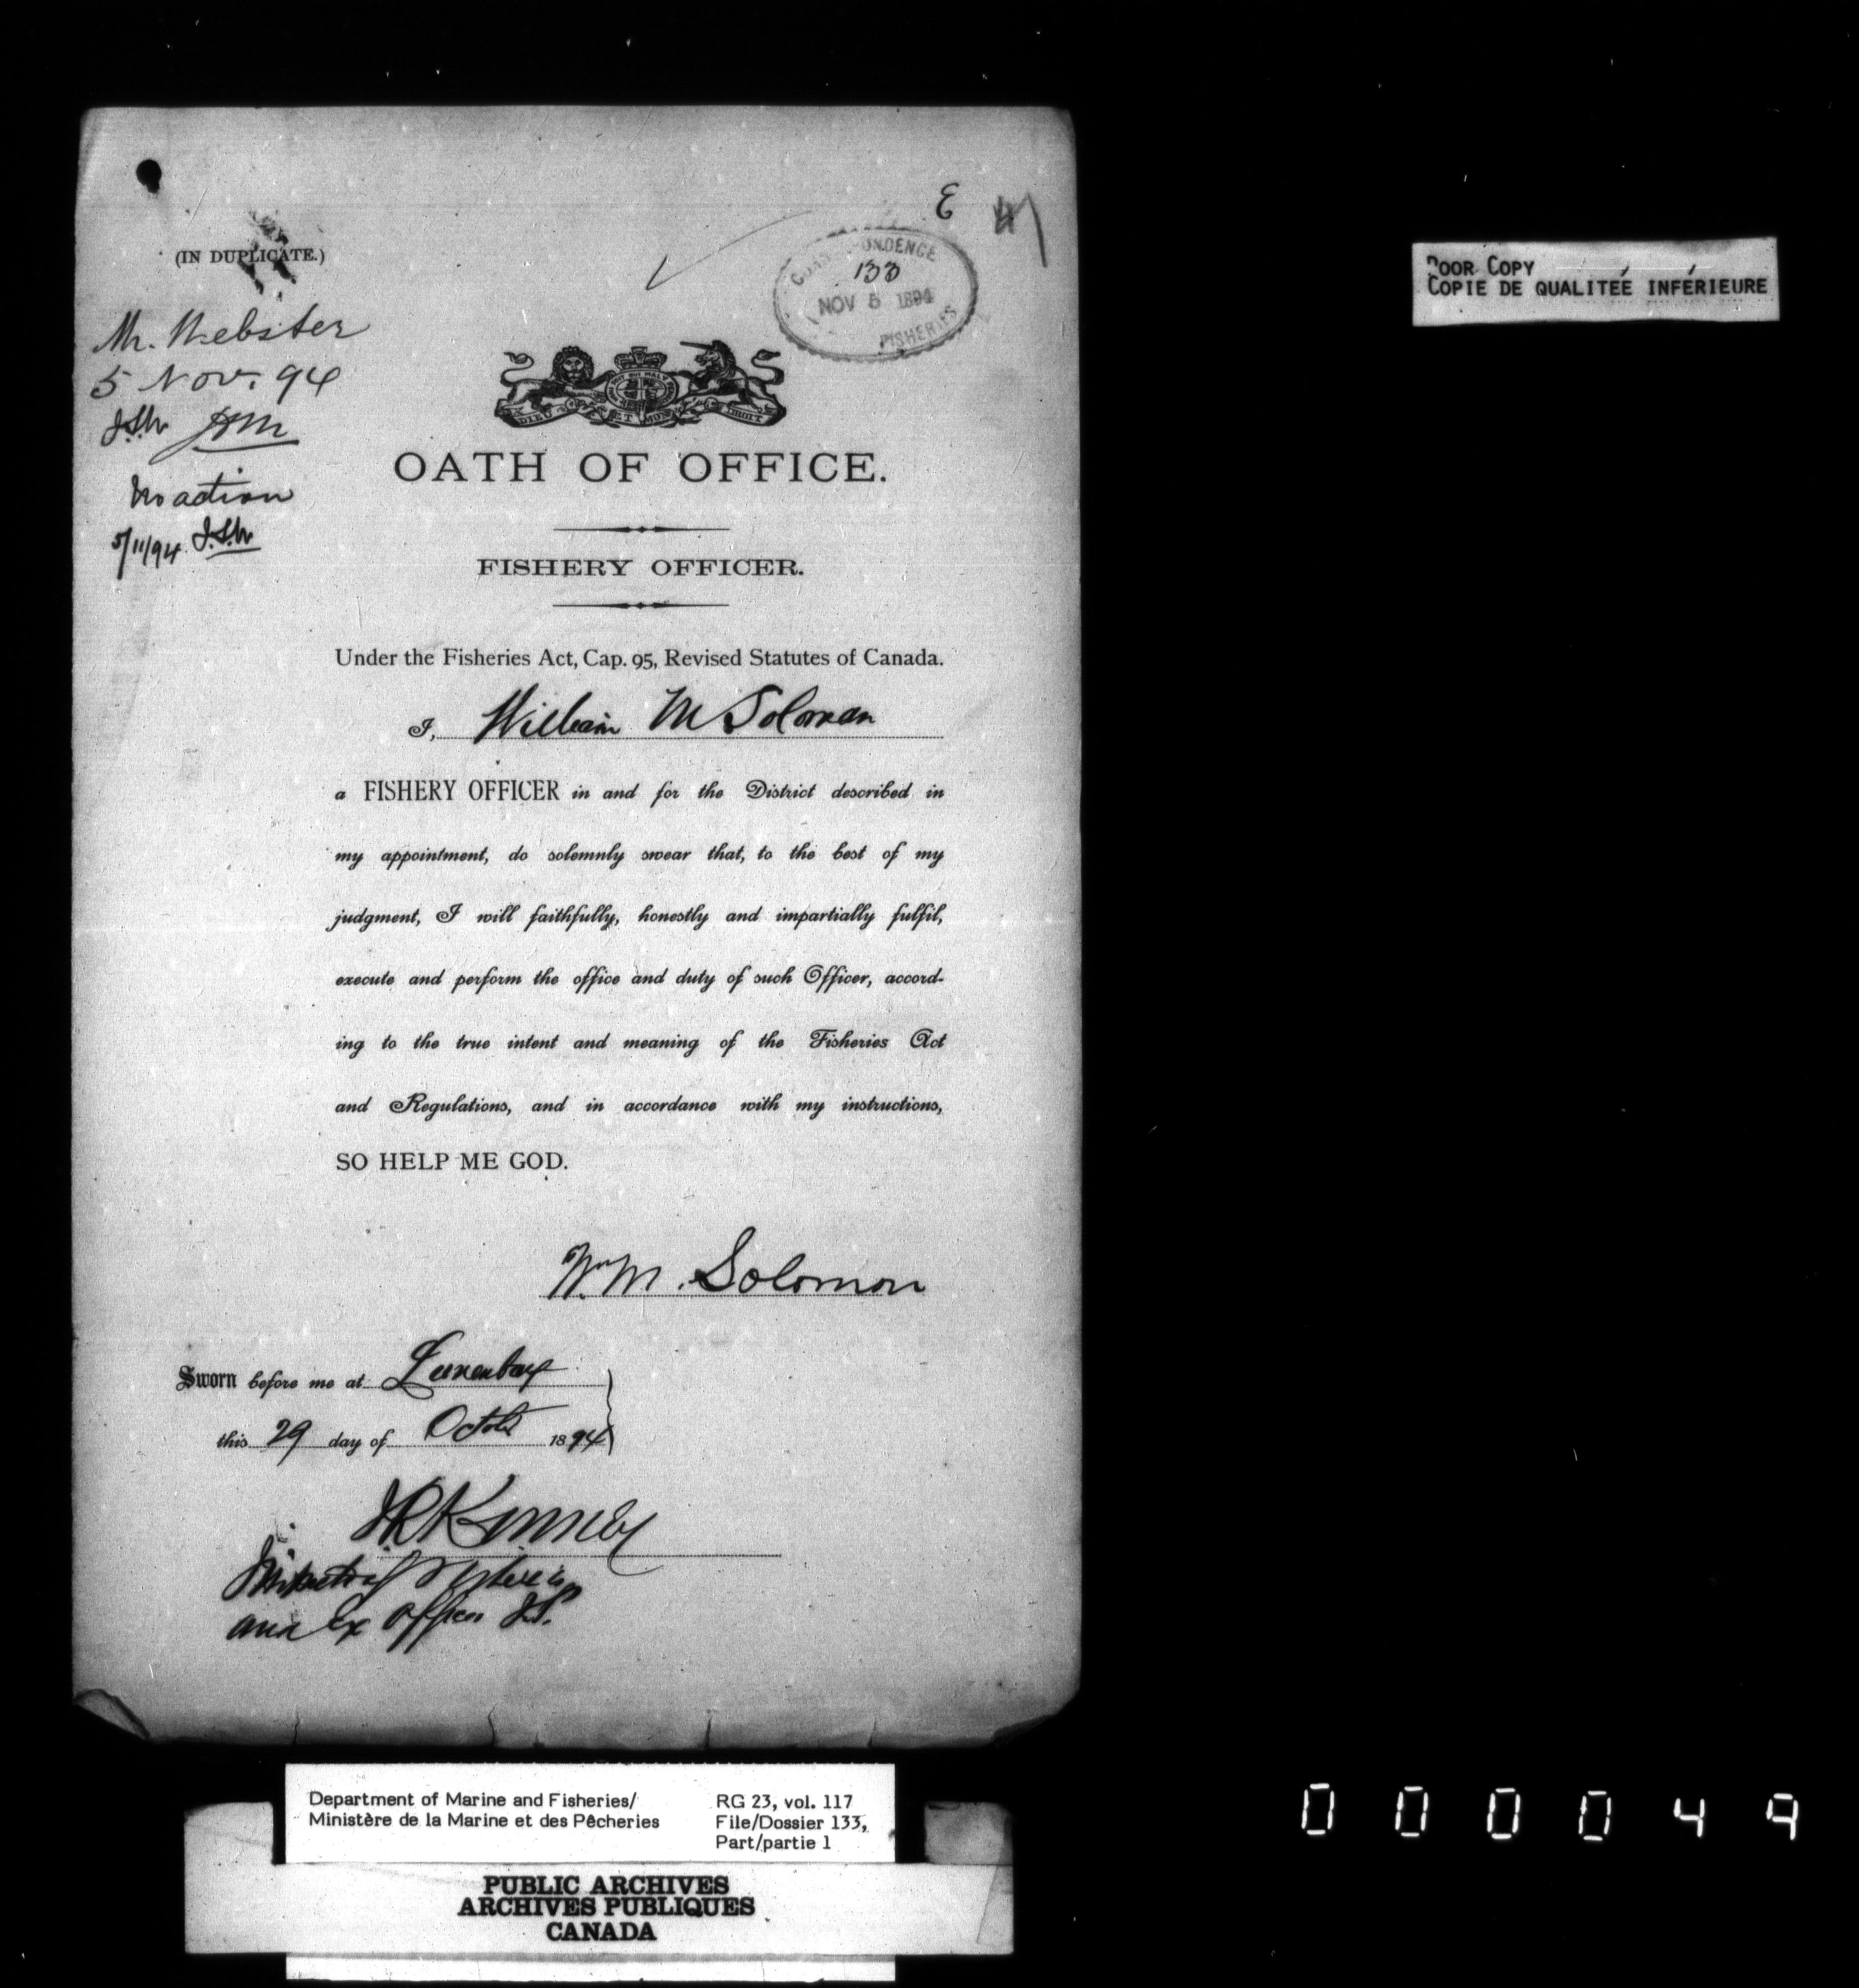 E 47
(IN DUPLICATE.)
CORRESPONDENCE
133
NOV 5 1894
FISHERIES
Mr. Webster
5 Nov. 94
No action
5/11/94
DIEU ET MON DROIT
OATH OF OFFICE.
FISHERY OFFICER.
Under the Fisheries Act, Cap. 95, Revised Statutes of Canada.
I, William M Soloman
a FISHERY OFFICER in and for the District described in
my appointment, do solemnly swear that, to the best of my
judgment, I will faithfully, honestly and impartially fulfil,
execute and perform the office and duty of such Officer, accord-
ing to the true intent and meaning of the Fisheries Act
and Regulations, and in accordance with my instructions,
SO HELP ME GOD.
Wm M. Solomon
Sworn before me at Lunenburg
this 29 day of Octobr 1894
Kinney
Inspector of Fisheries
and Ex Officio J.P.
POOR COPY
COPIE DE QUALITEÉ INFÉRIEURE
Department of Marine and Fisheries/
Ministère de la Marine et des Pêcheries
RG 23, vol. 117
File/Dossier 133,
Part/partie 1
PUBLIC ARCHIVES
ARCHIVES PUBLIQUES
CANADA
000049